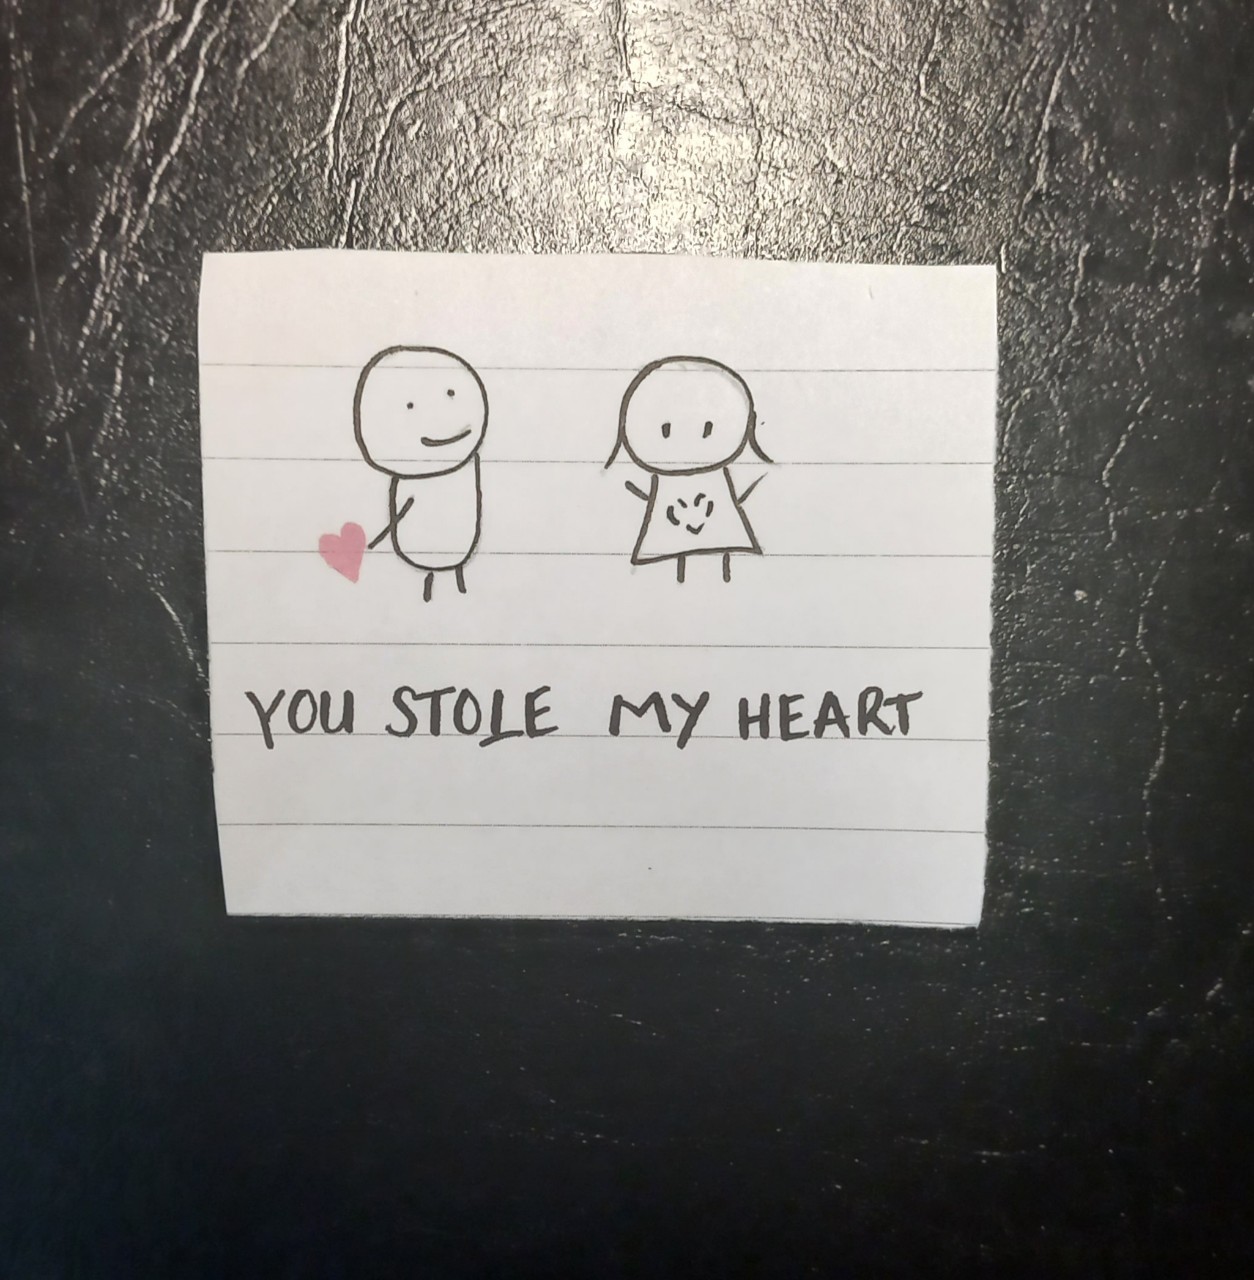 YOU STOLE MY HEART